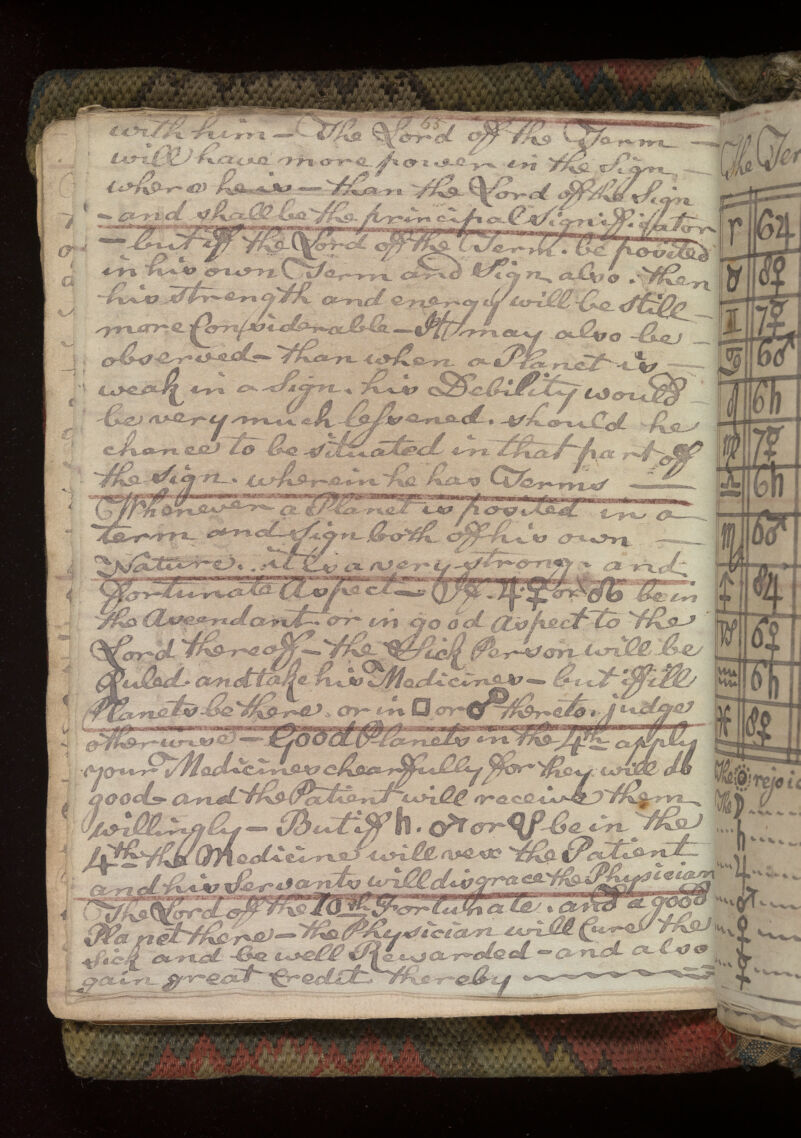 65
with him – The Lord off the Term –
will have more power in the Sign –
where he is – than the Lord off the Sign
– and shall be the principal Significator
– but iff the Lord off the Term. be posited
in his own Term and Sign also. then
his strength and energy will be Still –
more Considerable – It may also be –
observed – than when a Planet is –
weak in a Sign. his Debility would –
be very much lessened. should he
chance to be situated in that part off
the Sign. wherein he has Terms —
Whenever a Planet is posited in a –
term and Sign both off his own —
Nature. it is a very strong. and
ffortunate Aspect – Iff. ♃. ♀ or ☊ be in
the Ascendant. or in good aspect to the
Lord thereoff – the Sick Person will be
Ruled. and take his Medicines – but iff ill
Planets be there. or in □ or ☍ thereto. judge
otherwise – Good Planets in the 4th apply
your Medicines chearffully ffor they will do
good – and the Patient will receive them
willingly – But iff ♄. ♂ or ☋ be in the
4th the Medicine will vex the Patient
and his Servants will disgrace the Physician
The Lord off the 10th Fortunate. and a good
Planet there – the Physician will Cure the
Sick and be well Rewarded – and also
gain great Credit thereby
The Ter
♈ 6 ♃
♉ 8 ♀
♊ 7 ☿
♋ 6 ♂
♌ 6 ♄
♍ 7 ☿
♎ 6 ♄
♏ 6 ♂
♐ 8 ♃
♑ 6 ♀
♒ 6 ♄
♓ 8 ♀
The ☉ rejoic
The ☽ ....
... ♄ ....
... ♃ ....
... ♂ ....
... ♀ ....
... ☿ ....